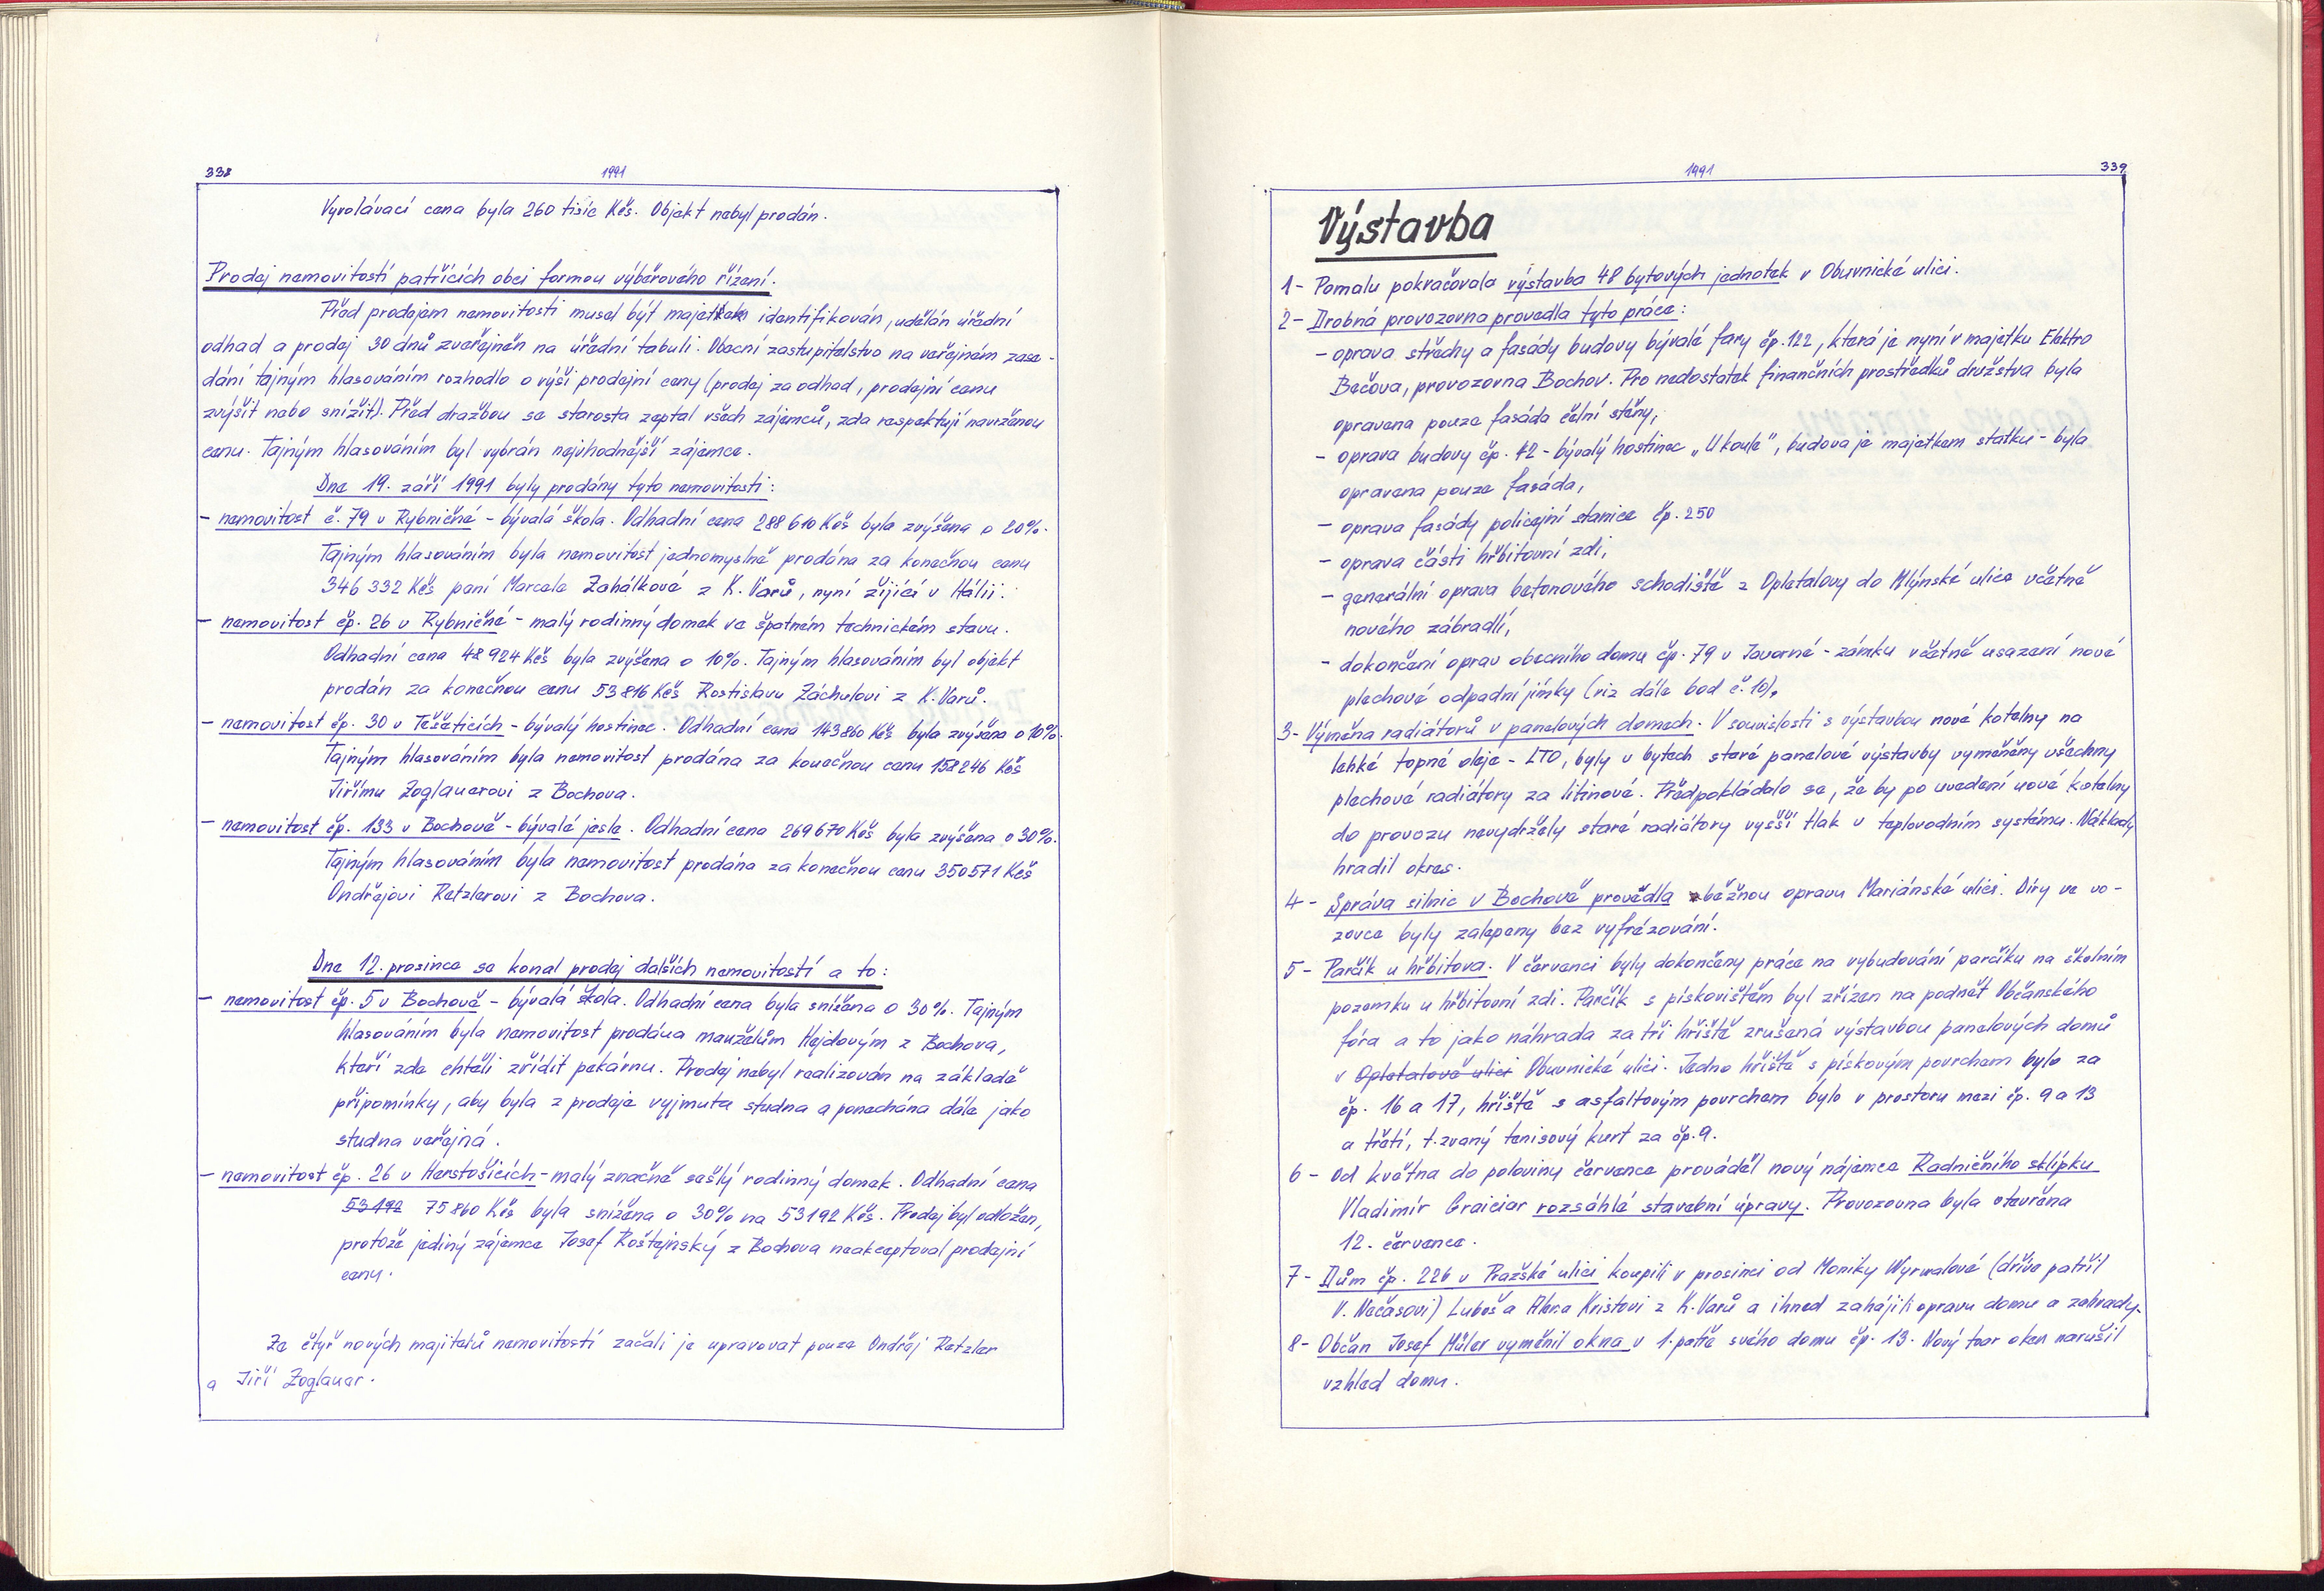 338
1991
Vyvolávací cena byla 260 tisíc Kčs. Objekt nebyl prodán.
Prodej nemovitostí patřících obci formou výběrového řízení.
Před prodejem nemovitosti musel být majetkem identifikován, udělán úřední
odhad a prodej 30 dnů zveřejněn na úřední tabuli. Obecní zastupitelstvo na veřejném zase-
dání tajným hlasováním rozhodlo o výši prodejní ceny (prodej za odhad, prodejní cenu
zvýšit nebo snížit). Před dražbou se starosta zeptal všech zájemců, zda respektují navrženou
cenu. Tajným hlasováním byl vybrán nejvhodnější zájemce.
Dne 19. září 1991 byly prodány tyto nemovitosti:
- nemovitost č. 79 v Rybničné - bývalá škola. Odhadní cena 288 610 Kčs byla zvýšena o 20%.
Tajným hlasováním byla nemovitost jednomyslně prodána za konečnou cenu
346 332 Kčs paní Marcele Zahálkové z K. Varů, nyní žijící v Itálii.
- nemovitost čp. 26 v Rybničné - malý rodinný domek ve špatném technickém stavu.
Odhadní cena 48 924 Kčs byla zvýšena o 10%. Tajným hlasováním byl objekt
prodán za konečnou cenu 53 816 Kčs Rostislavu Záchulovi z K. Varů.
- nemovitost čp. 30 v Těšeticích - bývalý hostinec. Odhadní cena 143 860 Kčs byla zvýšena o 10%.
Tajným hlasováním byla nemovitost prodána za konečnou cenu 158 246 Kčs
Jiřímu Zoglauerovi z Bochova.
- nemovitost čp. 133 v Bochově - bývalé jesle. Odhadní cena 269 670 Kčs byla zvýšena o 30%.
Tajným hlasováním byla nemovitost prodána za konečnou cenu 350 571 Kčs
Ondřejovi Retzlerovi z Bochova.
Dne 12. prosince se konal prodej dalších nemovitostí a to:
- nemovitost čp. 5 v Bochově - bývalá škola. Odhadní cena byla snížena o 30%. Tajným
hlasováním byla nemovitost prodána manželům Hejdovým z Bochova,
kteří zde chtěli zřídit pekárnu. Prodej nebyl realizován na základě
připomínky, aby byla z prodeje vyjmuta studna a ponechána dále jako
studna veřejná.
- nemovitost čp. 26 v Herstošicích - malý značně sešlý rodinný domek. Odhadní cena
53192 75 860 Kčs byla snížena o 30% na 53192 Kčs. Prodej byl odložen,
protože jediný zájemce Josef Roštejnský z Bochova neakceptoval prodejní
cenu.
Ze čtyř nových majitelů nemovitostí začali je upravovat pouze Ondřej Retzler
a Jiří Zoglauer.
1991
339
Výstavba
1- Pomalu pokračovala výstavba 48 bytových jednotek v Obuvnické ulici.
2- Drobná provozovna provedla tyto práce:
- oprava střechy a fasády budovy bývalé fary čp. 122, která je nyní v majetku Elektro
Bečova, provozovna Bochov. Pro nedostatek finančních prostředků družstva byla
opravena pouze fasáda čelní stěny,
- oprava budovy čp. 12 - bývalý hostinec „U koule", budova je majetkem statku - byla
opravena pouze fasáda,
- oprava fasády policejní stanice čp. 250
- oprava části hřbitovní zdi,
- generální oprava betonového schodiště z Opletalovy do Mlýnské ulice včetně
nového zábradlí,
- dokončení oprav obecního domu čp. 79 v Javorné - zámku včetně usazení nové
plechové odpadní jímky (viz dále bod č. 10).
3- Výměna radiátorů v panelových domech. V souvislosti s výstavbou nové kotelny na
lehké topné oleje - LTO, byly v bytech staré panelové výstavby vyměněny všechny
plechové radiátory za litinové. Předpokládalo se, že by po uvedení nové kotelny
do provozu nevydržely staré radiátory vyšší tlak v teplovodním systému. Náklady
hradil okres.
4- Správa silnic v Bochově provedla běžnou opravu Mariánské ulici. Díry ve vo-
zovce byly zalepeny bez vyfrézování.
5- Parčík u hřbitova. V červenci byly dokončeny práce na vybudování parčíku na školním
pozemku u hřbitovní zdi. Parčík s pískovištěm byl zřízen na podnět Občanského
fóra a to jako náhrada za tři hřiště zrušená výstavbou panelových domů
v Opletalově ulici Obuvnické ulici. Jedno hřiště s pískovým povrchem bylo za
čp. 16 a 17, hřiště s asfaltovým povrchem bylo v prostoru mezi čp. 9 a 13
a třetí, t. zvaný tenisový kurt za čp. 9.
6- Od května do poloviny července prováděl nový nájemce Radničního sklípku
Vladimír Graiciar rozsáhlé stavební úpravy. Provozovna byla otevřena
12. července.
7- Dům čp. 226 v Pražské ulici koupili v prosinci od Moniky Wyrwalové (dříve patřil
V. Nečasovi) Luboš a Alena Kristovi z K. Varů a ihned zahájili opravu domu a zahrady.
8- Občan Josef Müler vyměnil okna v 1. patře svého domu čp. 13. Nový tvar oken narušil
vzhled domu.